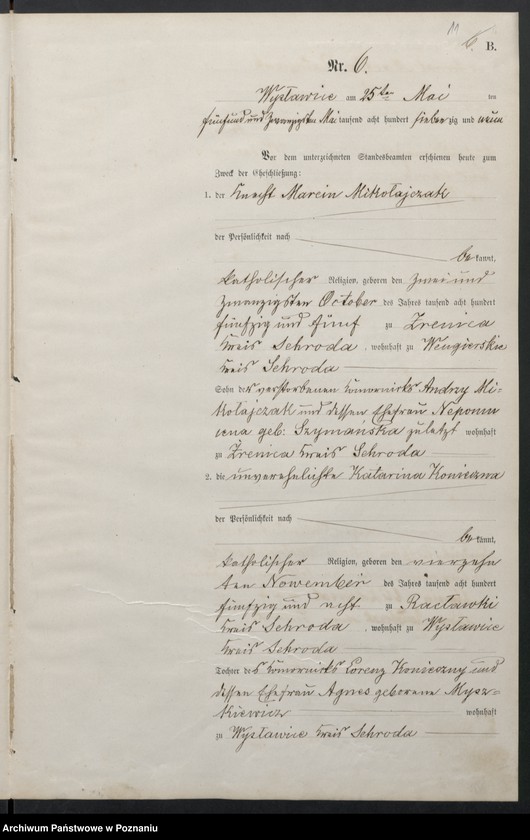 11
6. B.
Nr. 6.
Wysławice am 25ten Mai ten
fünfund zwanzigsten Mai tausend acht hundert siebenzig und neun
Vor dem unterzeichneten Standesbeamten erschienen heute zum
Zweck der Eheschließung:
1. der Knecht Marcin Mikołajczak
der Persönlichkeit nach
bekannt,
katholischer Religion, geboren den zwei und
zwanzigsten October des Jahres tausend acht hundert
fünfzig und fünf zu Zrenica
Kreis Schroda, wohnhaft zu Wengierskie
Kreis Schroda
Sohn des verstorbenen Komorniks Andrzy Mi-
kołajczak und dessen Ehefrau Nepomu
cena geb: Szymańska zuletzt wohnhaft
zu Zrenica Kreis Schroda
2. die unverehelichte Katarina Konieczna
der Persönlichkeit nach
bekannt,
katholischer Religion, geboren den vierzehn
ten November des Jahres tausend acht hundert
fünfzig und acht zu Racławki
Kreis Schroda, wohnhaft zu Wysławice
Kreis Schroda
Tochter des Komorniks Lorenz Konieczny und
dessen Ehefrau Agnes geborene Mysz-
kiewicz wohnhaft
zu Wysławice Kreis Schroda
Archiwum Państwowe w Poznaniu